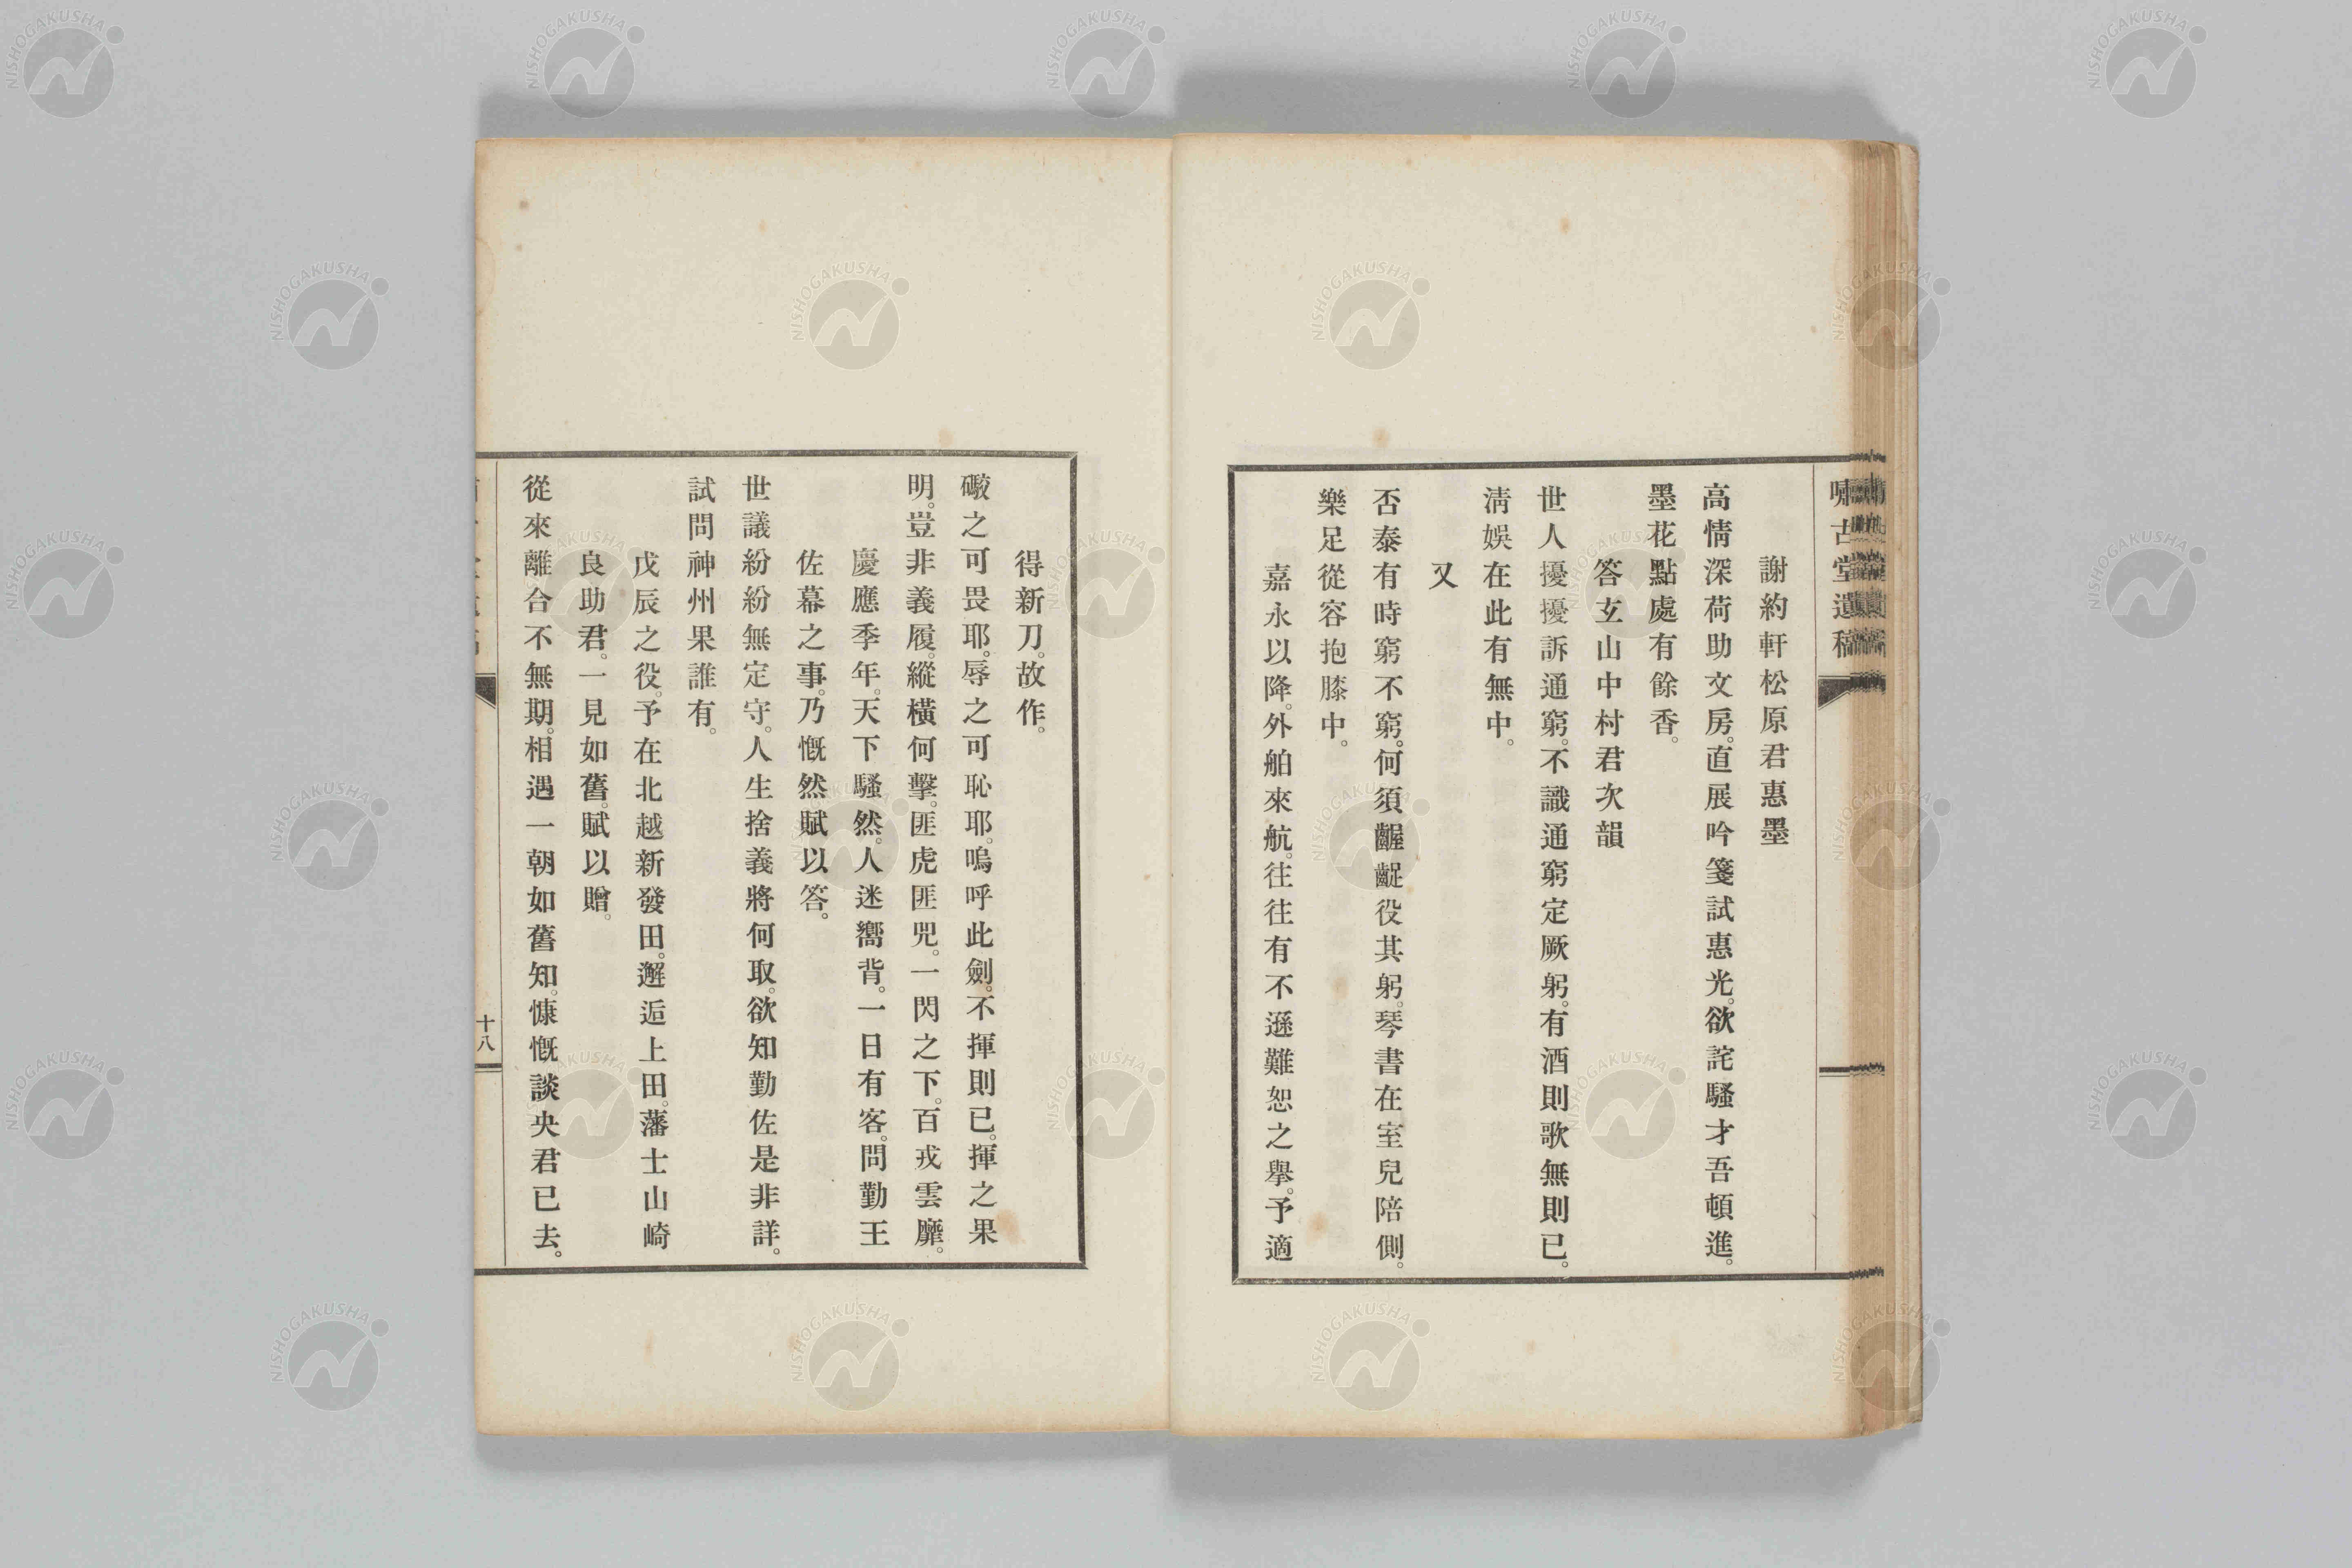 嘯古堂遺稿
謝約軒松原君惠墨
高情深荷助文房。直展吟箋試惠光。欲詫騷才吾頓進。
墨花點處有餘香。
答玄山中村君次韻
世人擾擾訴通窮。不識通窮定厥躬。有酒則歌無則已。
淸娛在此有無中。
又
否泰有時窮不窮。何須齷齪役其躬。琴書在室兒陪側。
樂足從容抱膝中。
嘉永以降。外舶來航。往往有不遜難恕之擧。予適
得新刀。故作。
礮之可畏耶。辱之可恥耶。嗚呼此劍。不揮則已。揮之果
明。豈非義履。縱橫何擊。匪虎匪兕。一閃之下。百戎雲靡。
慶應季年。天下騷然。人迷嚮背。一日有客。問勤王
佐幕之事。乃慨然賦以答。
世議紛紛無定守。人生捨義將何取。欲知勤佐是非詳。
試問神州果誰有。
戊辰之役。予在北越新發田。邂逅上田。藩士山崎
良助君。一見如舊。賦以贈。
從來離合不無期。相遇一朝如舊知。慷慨談央君已去。
十八
NISHOGAKUSHA